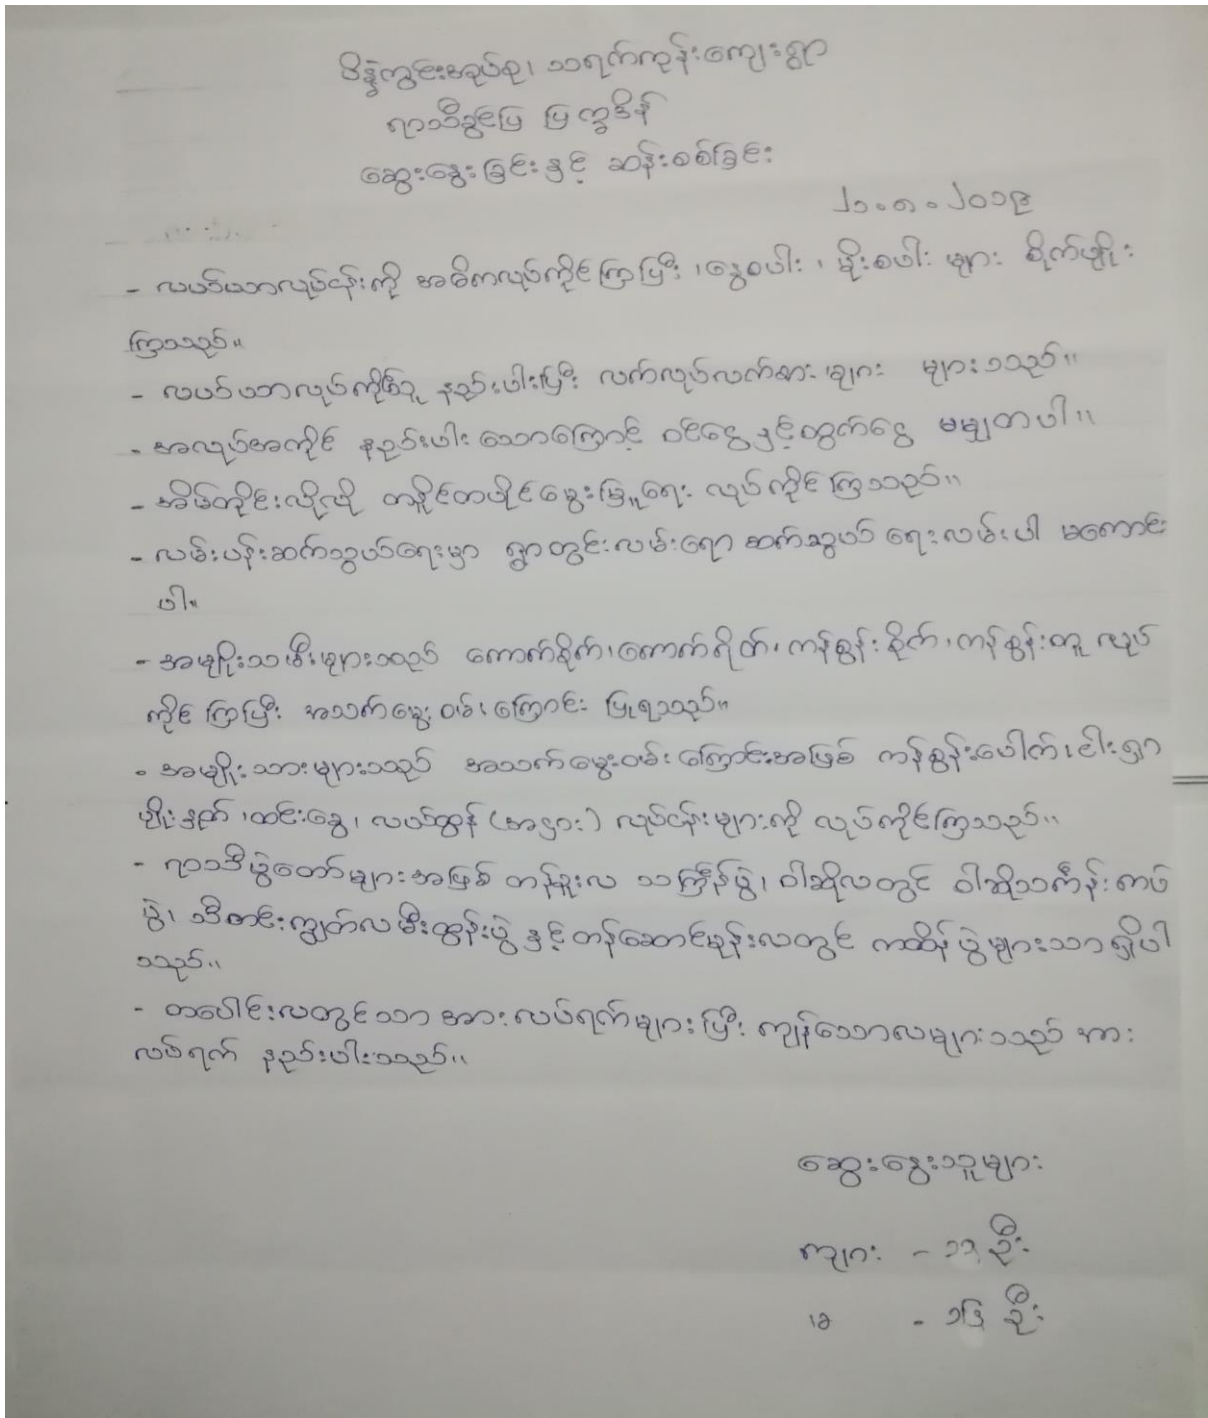 ပိန္နဲကွင်းအုပ်စု၊ သရက်ကုန်းကျေးရွာ
ရာသီခွင်ပြ ပြက္ခဒိန်
ဆွေးနွေးခြင်းနှင့် ဆန်းစစ်ခြင်း
၂၁.၈.၂၀၁၉
- လယ်ယာလုပ်ငန်းကို အဓိကလုပ်ကိုင်ကြပြီး ၊နွေစပါး ၊ မိုးစပါး များ စိုက်ပျိုး
ကြသည်။
- လယ်ယာလုပ်ကိုင်သူ နည်းပါးပြီး လက်လုပ်လက်စား များ များသည်။
- အလုပ်အကိုင် နည်းပါး သောကြောင့် ဝင်ငွေနှင့်ထွက်ငွေ မမျှတပါ။
- အိမ်တိုင်းလိုလို တနိုင်တပိုင်မွေးမြူရေး လုပ်ကိုင်ကြသည်။
- လမ်းပန်းဆက်သွယ်ရေးမှာ ရွာတွင်းလမ်းရော ဆက်သွယ် ရေးလမ်းပါ မကောင်း
ပါ။
- အမျိုးသမီးများသည် ကောက်စိုက်၊ကောက်ရိတ်၊ ကန်စွန်းစိုက်၊ကန်စွန်းတူ လုပ်
ကိုင်ကြပြီး အသက်မွေးဝမ်းကြောင်း ပြုရသည်။
- အမျိုးသားများသည် အသက်မွေးဝမ်းကြောင်းအဖြစ် ကန်စွန်းပေါက်၊ငါးရှာ
ပျိုးနှုတ် ၊ထင်းခွေ၊ လယ်ထွန် (အငှား) လုပ်ငန်းများကို လုပ်ကိုင်ကြသည်။
- ရာသီပွဲတော်များအဖြစ် တန်ခူးလ သင်္ကြန်ပွဲ၊ ဝါဆိုလတွင် ဝါဆိုသင်္ကန်းကပ်
ပွဲ၊ သီတင်းကျွတ်လမီးထွန်းပွဲ နှင့် တန်ဆောင်မုန်းလတွင် ကထိန်ပွဲများသာရှိပါ
သည်။
- တပေါင်းလတွင်သာ အားလပ်ရက်များပြီး ကျန်သောလများသည် အား
လပ်ရက် နည်းပါးသည်။
ဆွေးနွေးသူများ
ကျား - ၁၃ ဦး
မ - ၁၆ ဦး